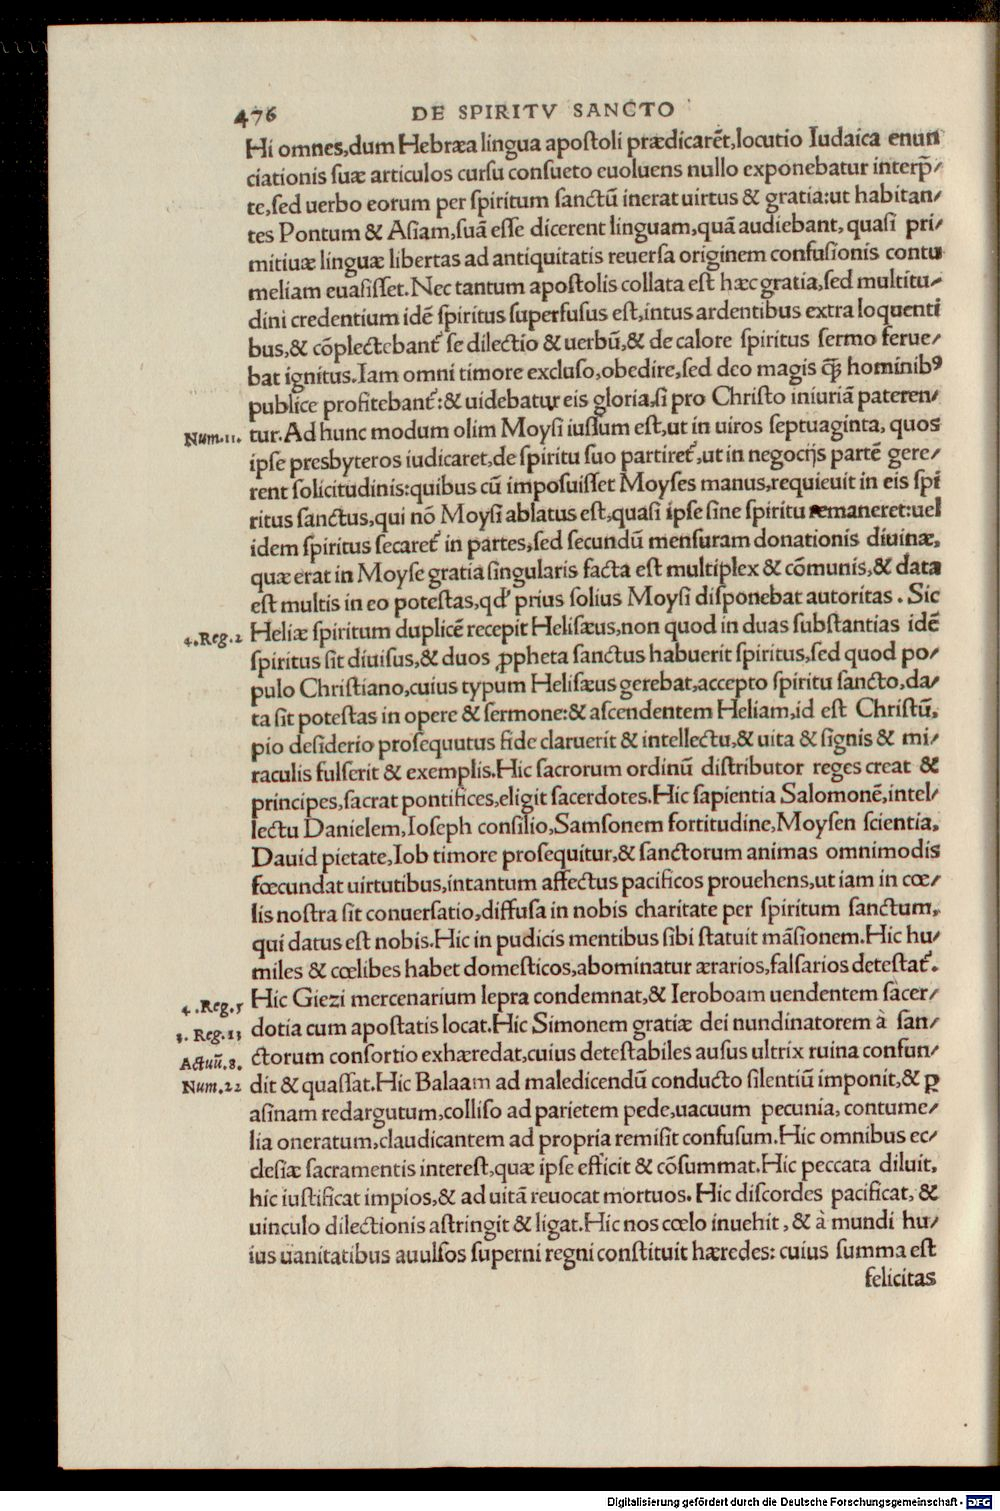 476 DE SPIRITV SANCTO
Hi omnes,dum Hebræa lingua apostoli prædicarẽt,locutio Iudaica enun
ciationis suæ articulos cursu consueto euoluens nullo exponebatur interp̃/
te,sed uerbo eorum per spiritum sanctũ inerat uirtus & gratia:ut habitan/
tes Pontum & Asiam,suã esse dicerent linguam,quã audiebant, quasi pri/
mitiuæ linguæ libertas ad antiquitatis reuersa originem confusionis contu
meliam euasisset.Nec tantum apostolis collata est hæc gratia,sed multitu/
dini credentium idẽ spiritus superfusus est,intus ardentibus extra loquenti
bus,& cõplectebant᷑ se dilectio & uerbũ,& de calore spiritus sermo ferue/
bat ignitus.Iam omni timore excluso,obedire,sed deo magis q̃ꝫ hominibꝰ
publice profitebant᷑:& uidebatur eis gloria,si pro Christo iniuriã pateren/
Num.11. tur.Ad hunc modum olim Moysi iussum est,ut in uiros septuaginta, quos
ipse presbyteros iudicaret,de spiritu suo partiret᷑,ut in negocijs partẽ gere/
rent solicitudinis:quibus cũ imposuisset Moyses manus,requieuit in eis spi
ritus sanctus,qui nõ Moysi ablatus est,quasi ipse sine spiritu remaneret:uel
idem spiritus secaret᷑ in partes,sed secundũ mensuram donationis diuinæ,
quæ erat in Moyse gratia singularis facta est multiplex & cõmunis,& data
est multis in eo potestas,qd᷑ prius solius Moysi disponebat autoritas . Sic
4.Reg.2 Heliæ spiritum duplicẽ recepit Helisæus,non quod in duas substantias idẽ
spiritus sit diuisus,& duos ꝓpheta sanctus habuerit spiritus,sed quod po/
pulo Christiano,cuius typum Helisæus gerebat,accepto spiritu sancto,da/
ta sit potestas in opere & sermone:& ascendentem Heliam,id est Christũ,
pio desiderio prosequutus fide claruerit & intellectu,& uita & signis & mi/
raculis fulserit & exemplis.Hic sacrorum ordinũ distributor reges creat &
principes,sacrat pontifices,eligit sacerdotes.Hic sapientia Salomonẽ,intel/
lectu Danielem,Ioseph consilio,Samsonem fortitudine,Moysen scientia,
Dauid pietate,Iob timore prosequitur,& sanctorum animas omnimodis
fœcundat uirtutibus,intantum affectus pacificos prouehens,ut iam in cœ/
lis nostra sit conuersatio,diffusa in nobis charitate per spiritum sanctum,
qui datus est nobis.Hic in pudicis mentibus sibi statuit mãsionem.Hic hu/
miles & cœlibes habet domesticos,abominatur ærarios,falsarios detestat᷑.
4.Reg.5 Hic Giezi mercenarium lepra condemnat,& Ieroboam uendentem sacer/
3. Reg.13 dotia cum apostatis locat.Hic Simonem gratiæ dei nundinatorem à san/
Actuũ.8. ctorum consortio exhæredat,cuius detestabiles ausus ultrix ruina confun/
Num.22 dit & quassat.Hic Balaam ad maledicendũ conducto silentiũ imponit,& ꝑ
asinam redargutum,colliso ad parietem pede,uacuum pecunia, contume/
lia oneratum,claudicantem ad propria remisit confusum.Hic omnibus ec/
clesiæ sacramentis interest,quæ ipse efficit & cõsummat.Hic peccata diluit,
hic iustificat impios,& ad uitã reuocat mortuos. Hic discordes pacificat, &
uinculo dilectionis astringit & ligat.Hic nos cœlo inuehit, & à mundi hu/
ius uanitatibus auulsos superni regni constituit hæredes: cuius summa est
felicitas
Digitalisierung gefördert durch die Deutsche Forschungsgemeinschaft - DFG